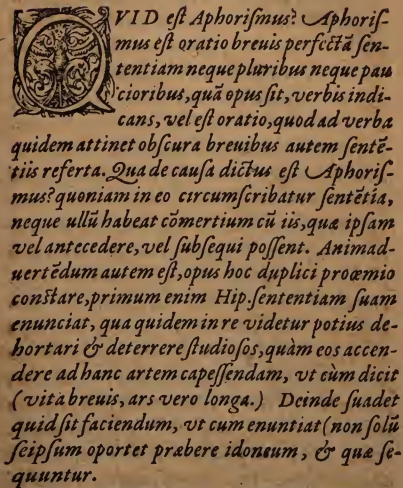 QVID eſt Aphoriſmus? Aphoriſ-
mus eſt oratio breuis perfectā ſen-
tentiam neque pluribus neque pau
cioribus, quā opus ſit, verbis indi-
cans, vel eſt oratio, quod ad verba
quidem attinet obſcura breuibus autem ſentē-
tiis referta. Qua de cauſa dictus eſt Aphoriſ-
mus? quoniam in eo circumſcribatur ſentētia,
neque ullū habeat cōmertium cū iis, quæ ipſam
vel antecedere, vel ſubſequi poſſent. Animad-
uertēdum autem eſt, opus hoc duplici proœmio
conſtare, primum enim Hip. ſententiam ſuam
enunciat, qua quidem in re videtur potius de-
hortari & deterrere ſtudioſos, quàm eos accen-
dere ad hanc artem capeſſendam, vt cùm dicit
(vita breuis, ars vero longa.) Deinde ſuadet
quid ſit faciendum, vt cum enuntiat (non ſolū
ſeipſum oportet præbere idoneum, & quæ ſe-
quuntur.